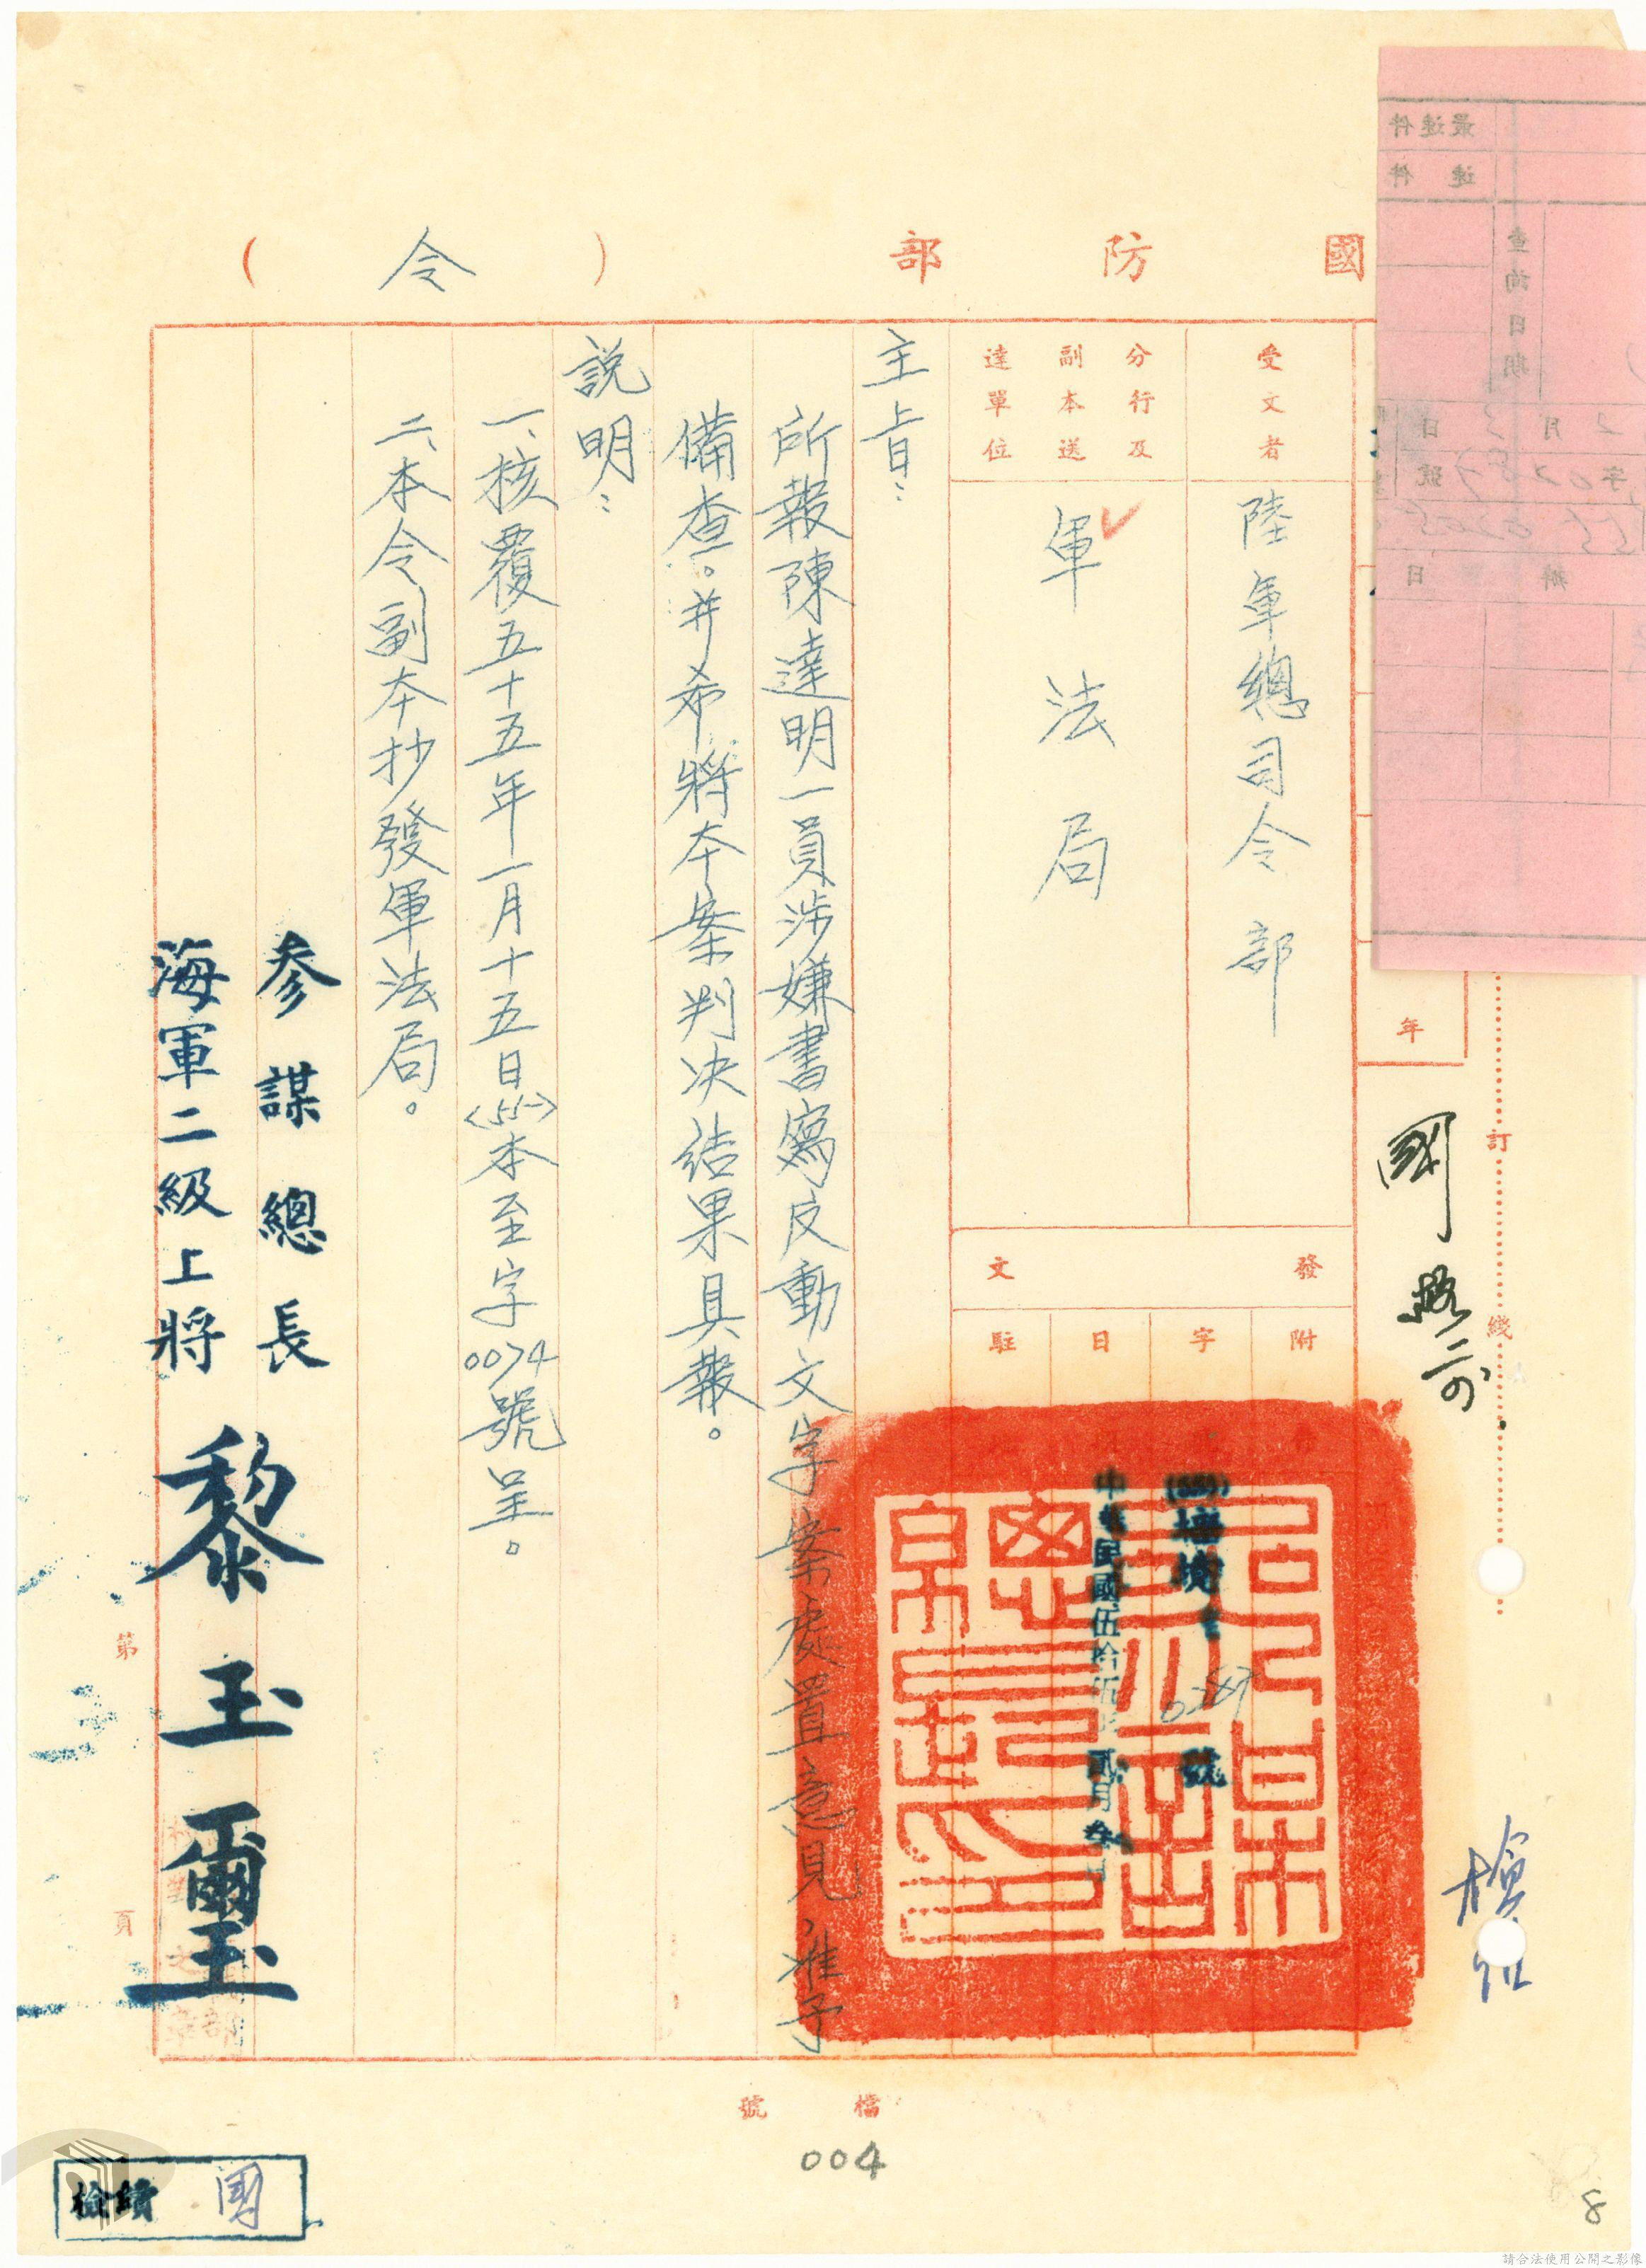 國防部（令）
受文者
陸軍總司令部
分行及
副本送
達單位
軍法局
發文
附
字
日
駐
中華民國伍拾伍年貳月叁日
號
主旨：
所報陳達明一員涉嫌書寫反動文字案處置意見，准予
備查。并希將本案判决結果具報。
說明：
一、核覆五十五年一月十五日〈55〉本至字0074號呈。
二、本令副本抄發軍法局。
參謀總長
海軍二級上將
黎玉璽
年
訂
綫
第
頁
檔號
004
8
檢續
國
最速件
速件
查詢日期
月
日
字
號
請合法使用公開之影像